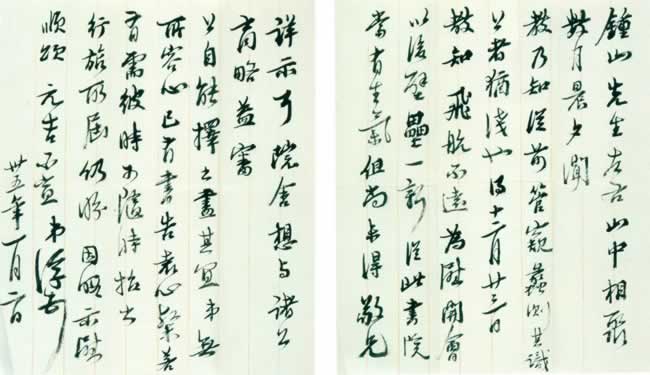 鍾山先生左右山中相聚
數月晨夕聞
教乃知從前管窺蠡測其識
公者猶淺也得十二月廿三日
教知飛航不遠為慰開會
以後壁壘一新從此書院
當有生氣但尚未得敬兄
詳示耳院舍想與諸公
商略益審
公自能擇之盡其宜弟無
所容心已有書告袁心粲
有需彼時可隨時招出
行旅所屆仍盼因風示慰
順頌 元吉不宣弟浮頓
卅五年一月二日